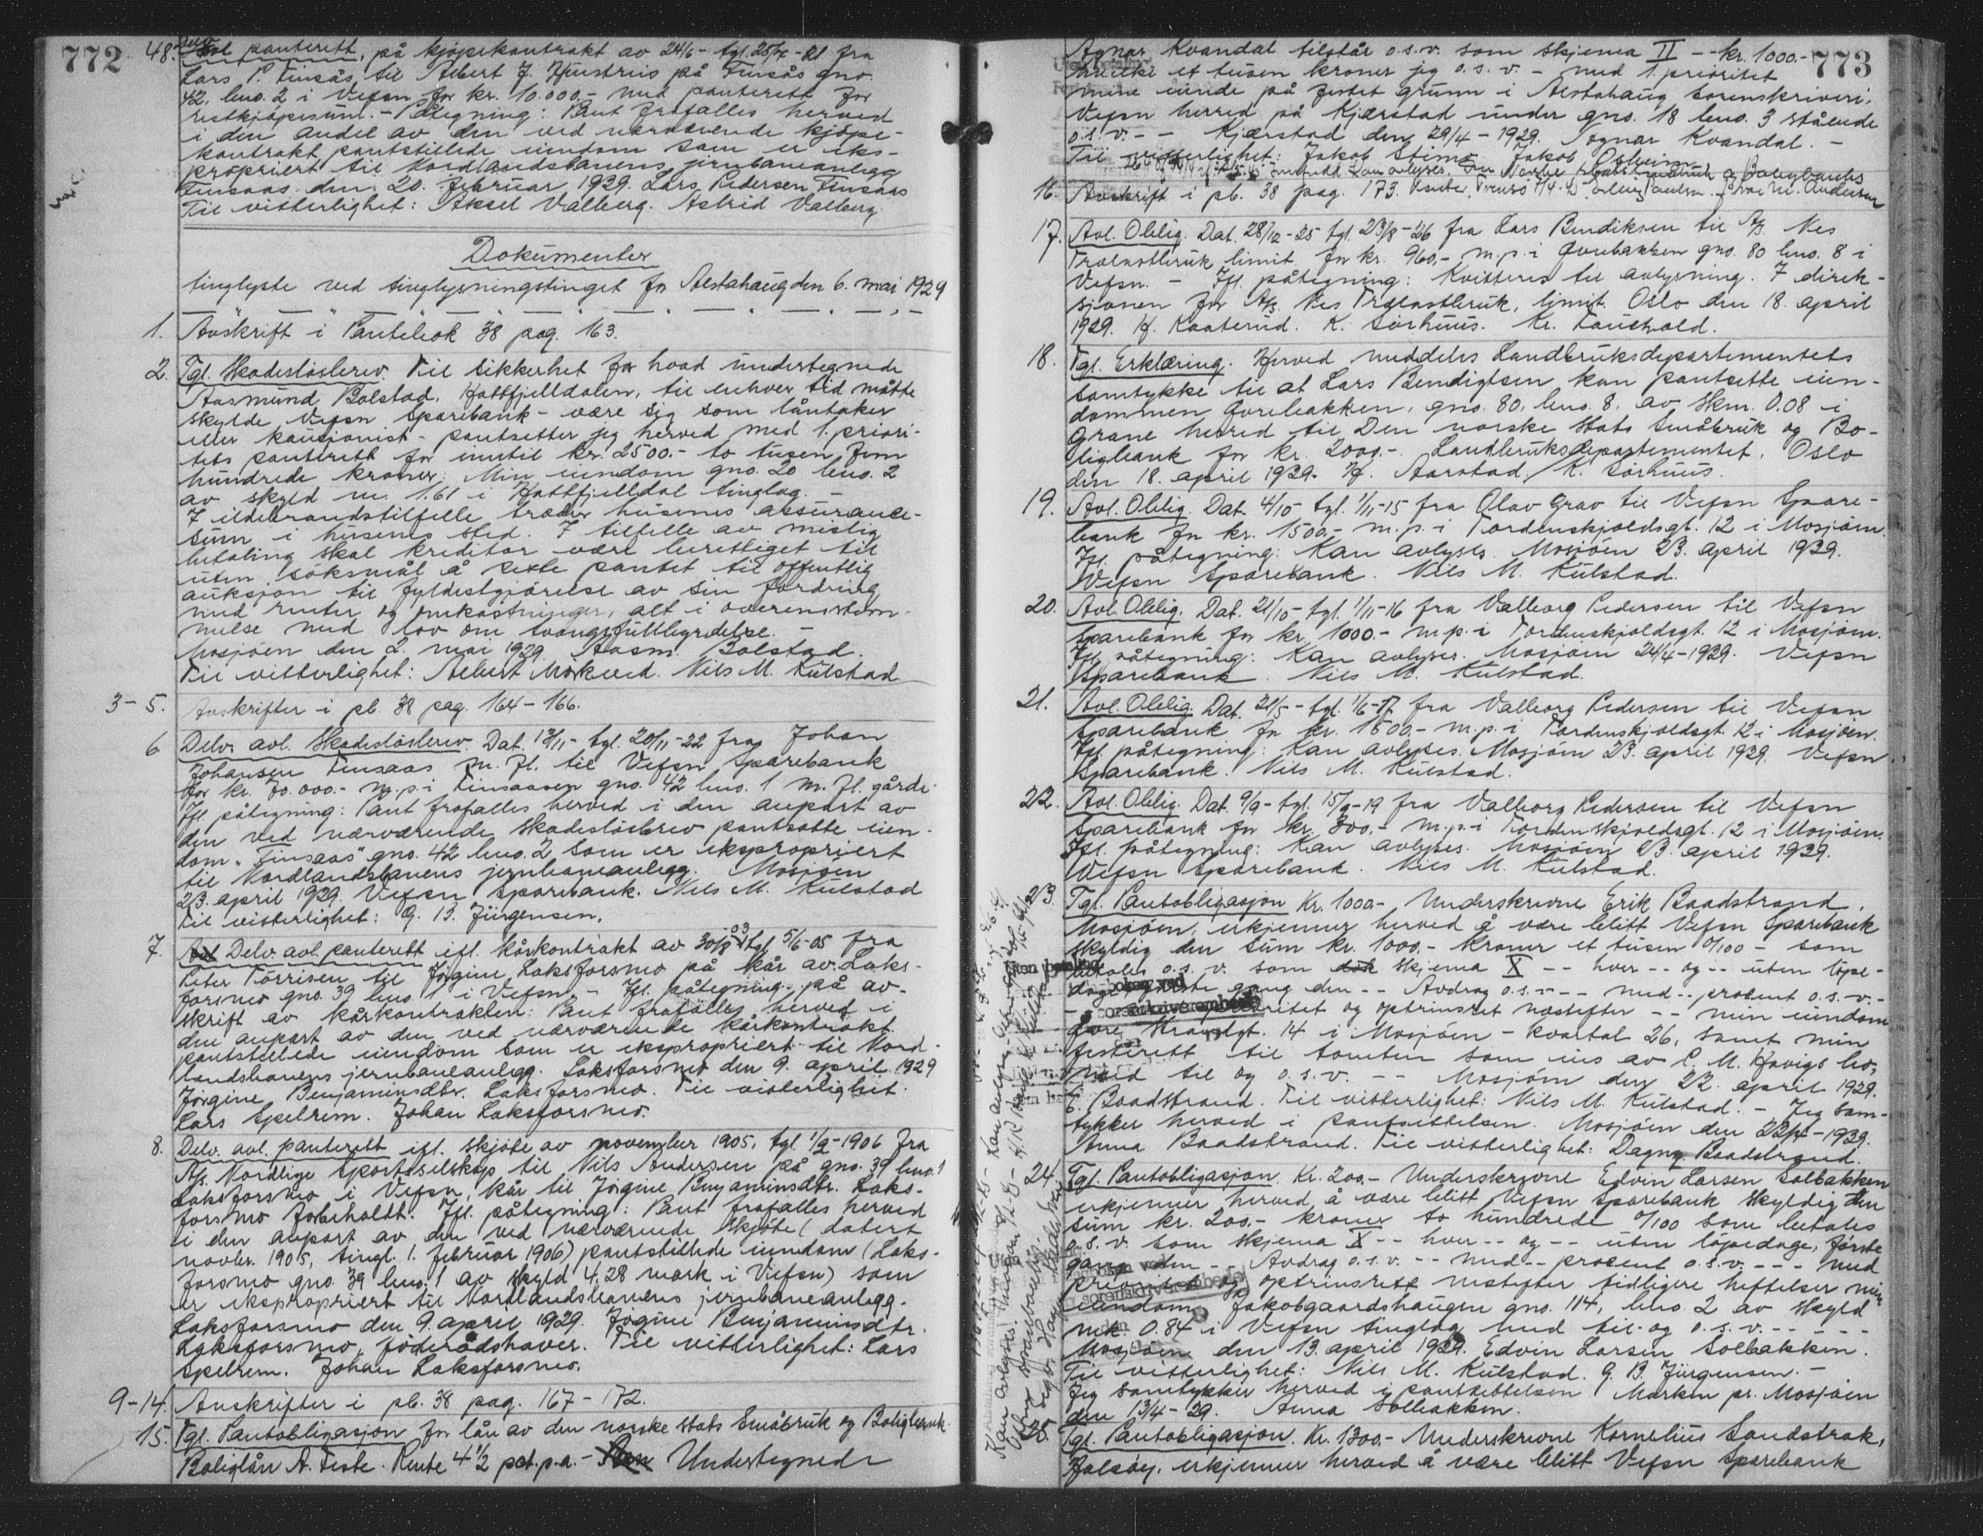 772
48. Delv. avl. panterett, på kjøpekontrakt av 24/6 - tgl. 25/7 - 21 fra
Lars P. Finsås til Albert J. Hustriis på Finsås gno.
42, bno. 2 i Vefsn for kr. 10.000,- med panterett for
restkjøpesum. - Påtegning: Pant frafalles herved
i den andel av den ved nærværende kjøpe-
kontrakt pantstillede eiendom som er eks-
propriert til Nordlandsbanens jernbaneanlegg
Finsaas den 20. februar 1929. Lars Pedersen Finsaas
Til vitterlighet: Aksel Valberg. Astrid Valberg.
Dokumenter
tinglyste ved tinglysningstinget for Alstahaug den 6. mai 1929
1. Avskrift i Pantebok 38 pag. 163.
2. Tgl. Skadesløsbrev. Til sikkerhet for hvad undertegnede
Aasmund Bolstad, Hattfjelldalen, til enhver tid måtte
skylde Vefsn Sparebank - være sig som låntaker
eller kausjonist - pantsetter jeg herved med 1. priori-
tets panterett for inntil kr. 2500.- to tusen fem
hundrede kroner. Min eiendom gno. 20 bno. 2
av skyld m. 1.61 i Hattfjelldal tinglag. -
I ildebrandstilfelle træder husenes assurance-
sum i husenes sted. I tilfelle av mislig
betaling skal kreditor være berettiget til
uten søksmål å sette pantet til offentlig
auksjon til fyldestgjørelse av sin fordring
med renter og omkostninger, alt i overensstem-
melse med lov om tvangsfullbyrdelse. -
Mosjøen den 2. mai 1929 Aasm. Bolstad.
Til vitterlighet: Albert Mørkved. Nils M. Kulstad
3-5. Avskrifter i pb. 38 pag. 164 - 166.
6 Delv. avl. Skadesløsbrev. Dat. 13/11 - tgl. 20/11 - 22 fra Johan
Johansen Finsaas m. fl. til Vefsn Sparebank
for kr. 70.000.- m.p. i Finsaasen gno. 42 bno. 1 m. fl. gårde.
Ifl. påtegning: Pant frafalles herved i den anpart av
den ved nærværende skadesløsbrev pantsatte eien-
dom "Finsaas" gno. 42 bno. 2 som er ekspropriert
til Nordlandsbanens jernbaneanlegg. Mosjøen
23. april 1929. Vefsn Sparebank. Nils M. Kulstad
Til vitterlighet: G. B. Jürgensen.
7. Delv. avl. panterett ifl. kårkontrakt av 30/9 03 tgl. 5/6-05 fra
Peter Torrisen til Jørgine Laksforsmo på kår av Laks-
forsmo gno. 39 bno. 1 i Vefsn. - Ifl. påtegning på av-
skrift av kårkontrakten: Pant frafalles herved i
den anpart av den ved nærværende kårkontrakt
pantstillede eiendom som er ekspropriert til Nord-
landsbanens jernbaneanlegg. Laksforsmo den 9. april 1929
Jørgine Benjaminsdtr. Laksforsmo. Til vitterlighet.
Lars Spelrem. Johan Laksforsmo.
8. Delv. avl. panterett ifl. skjøte av november 1905, tgl. 1/2 - 1906 fra
A/s. Nordlige Sportsselskap til Nils Andersen på gno. 39 bno. 1
Laksforsmo i Vefsn, kår til Jørgine Benjaminsdtr. Laks-
forsmo forbeholdt. Ifl. påtegning: Pant frafalles herved
i den anpart av den ved nærværende skjøte (datert
novbr. 1905, tingl. 1. februar 1906) pantstillede eiendom (Laks-
forsmo gno. 39 bno. 1 av skyld 4,28 mark i Vefsn) som
er ekspropriert til Nordlandsbanens jernbaneanlegg.
Laksforsmo den 9. april 1929. Jørgine Benjaminsdtr.
Laksforsmo, føderådshaver. Til vitterlighet: Lars
Spelrem. Johan Laksforsmo.
9-14. Avskrifter i pb. 38 pag. 167 - 172.
15. Tgl. Pantobligasjon for lån av den norske stats Småbruk og Boligbank.
Boliglån A. Feste. Rente 4 1/2 pct. p.a. - Undertegnede
773
Agnar Kvandal tilstår o.s.v. som skjema II - - kr. 1000.-
hvilke et tusen kroner jeg o.s.v. - med 1. prioritet
mine eiende på festet grunn i Alstahaug sorenskriveri,
Vefsn herred på Kjærstad under gno. 18 bno. 3 stående
o.s.v. - - Kjærstad den 29/4 - 1929. Agnar Kvandal. -
Til vitterlighet: Jakob Stimo Jakob
16. Avskrift i pb. 38 pag. 173.
17. Avl. Oblig. Dat. 28/12 - 25 tgl. 23/8 - 26 fra Lars Bendiksen til A/s. Nes
Trælastbruk limit. for kr. 960,- m.p. i Øvrebakken gno. 80 bno. 8 i
Vefsn. - Ifl. påtegning: Kvitteres til avlysning. I direk-
sjonen for A/s Nes Trælastbruk, limit. Oslo den 18. april
1929. H. Kaaterud. K. Sørhuus. Kr. Tausvold.
18. Tgl. Erklæring. Herved meddeles Landbruksdepartementets
samtykke til at Lars Bendigtsen kan pantsette eien-
dommen Øvrebakken, gno. 80, bno. 8, av skm. 0.08 i
Grane herred til Den norske stats Småbruk og Bo-
ligbank for kr. 2000.- Landbruksdepartementet, Oslo
den 18. april 1929. H. Aarstad / K. Sørhuus.
19. Avl. Oblig. Dat. 4/10 - tgl. 1/11 - 15 fra Olav Grav til Vefsn Spare-
bank for kr. 1500,- m.p. i Tordenskjoldsgt. 12 i Mosjøen.
Ifl. påtegning: Kan avlyses. Mosjøen 23. april 1929.
Vefsn Sparebank. Nils M. Kulstad.
20. Avl. Oblig. Dat. 21/10 - tgl. 1/11 - 16 fra Valborg Pedersen til Vefsn
Sparebank for kr 1000.- m.p. i Tordenskjoldsgt. 12 i Mosjøen.
Ifl. påtegning: Kan avlyses. Mosjøen 24/4 - 1929. Vefsn
Sparebank. Nils M. Kulstad.
21. Avl. Oblig. Dat. 21/5 - tgl. 1/6 - 17 fra Valborg Pedersen til Vefsn
Sparebank for kr. 1800.- m.p. i Tordenskjoldsgt. 12 i Mosjøen.
Ifl. påtegning: Kan avlyses. Mosjøen 23. april 1929. Vefsn
Sparebank. Nils M. Kulstad.
22. Avl. Oblig. Dat. 9/9 - tgl. 15/9 - 19 fra Valborg Pedersen til Vefsn
Sparebank for kr. 300.- m.p. i Tordenskjoldsgt. 12 i Mosjøen.
Ifl. påtegning: Kan avlyses. Mosjøen 23. april 1929.
Vefsn Sparebank. Nils M. Kulstad.
23. Tgl. Pantobligasjon Kr. 1000.- Underskrevne Erik Baadstrand,
Mosjøen, erkjenner herved å være blitt Vefsn Sparebank
skyldig den sum kr. 1000,- kroner et tusen 0/100 - som
betales o.s.v. som skjema X - - hver - - og - - uten løpe-
dage, første gang den - - Avdrag o.s.v. - - med - - procent o.s.v. -
prioritet og optrinsret næstefter - - min eiendom
gt. 14 i Mosjøen - kvartal 26, samt min
festerett til tomten som eies av C. M. Havigs bo,
med til og o.s.v. - - Mosjøen den 22. april 1929.
E. Baadstrand. Til vitterlighet: Nils M. Kulstad. - Jeg sam-
tykker herved i pantsettelsen. Mosjøen den 22/4 - 1929.
Anna Baadstrand. Til vitterlighet: Dagny Baadstrand.
24. Tgl. Pantobligasjon. Kr. 200.- Underskrevne Edvin Larsen Solbakken
erkjenner herved å være blitt Vefsn Sparebank skyldig den
sum kr. 200.- kroner to hundrede 0/100 som betales
o.s.v. som skjema X - - hver - - og - - uten løpedage, første
gang den - - Avdrag o.s.v. - - med - - procent o.s.v. - - - med
prioritet og optrinsrett nestefter tidligere heftelser min
eiendom Jakobgaardshaugen gno. 114, bno. 2 av skyld
mk. 0.84 i Vefsn tinglag med til og o.s.v. - - -
Mosjøen den 13. april 1929. Edvin Larsen Solbakken.
Til vitterlighet: Nils M. Kulstad. G. B. Jürgensen. -
Jeg samtykker herved i pantsettelsen Marken pr. Mosjøen
den 13/4 - 29. Anna Solbakken.
25. Tgl. Pantobligasjon. Kr. 1300.- Underskrevne Kornelius Sandstrak,
Halsøy, erkjenner herved å være blitt Vefsn Sparebank